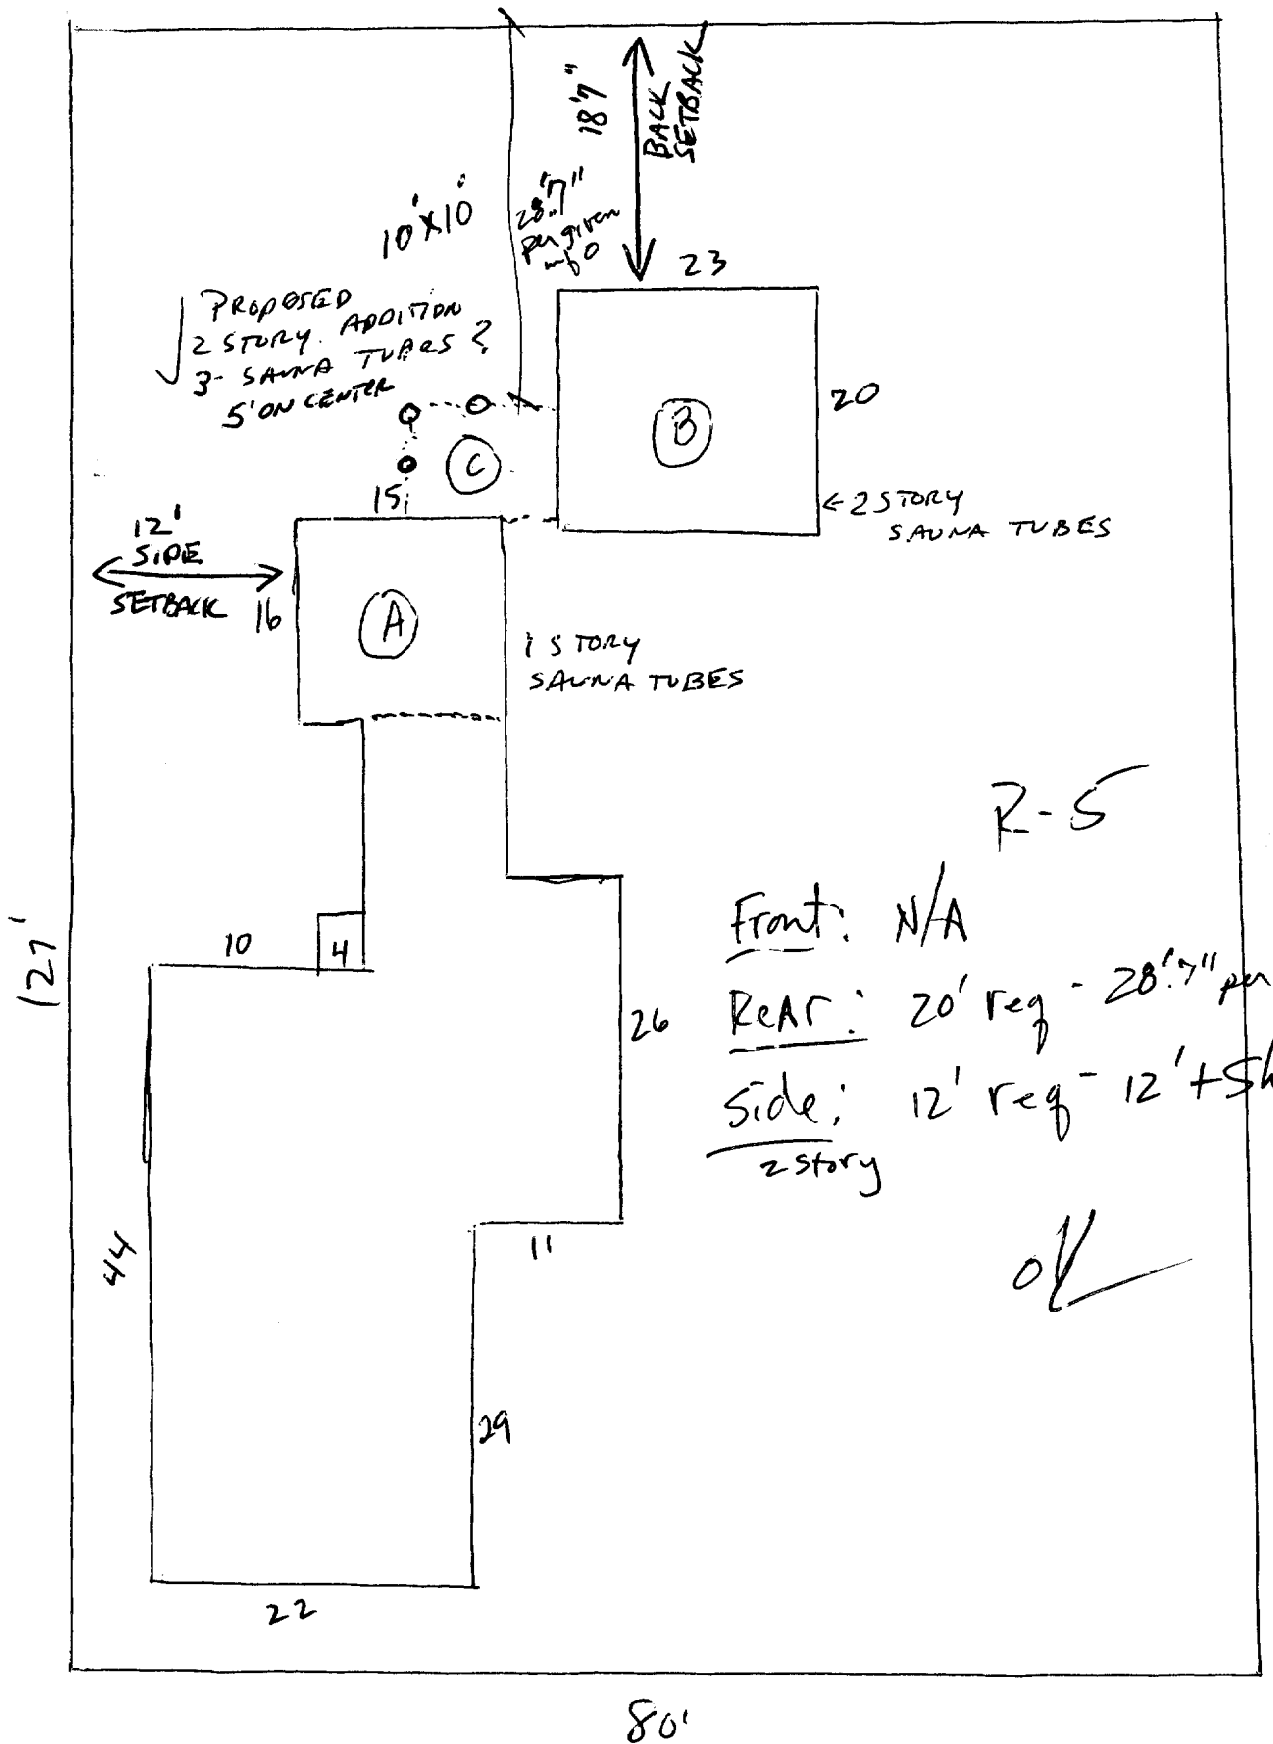 18'7"
BACK
SETBACK
10'x10'
28'.7"
per given
info
23
PROPOSED
2 STORY. ADDITION
3- SAUNA TUBES ?
5' ON CENTER
B
20
C
15
← 2 STORY
SAUNA TUBES
12'
SIDE
SETBACK
16
A
1 STORY
SAUNA TUBES
R-5
Front: N/A
10
4
127'
26
ReAr: 20' req - 28'.7" per
Side: 12' req - 12' + Sh
2 story
11
44
OK
29
22
80'